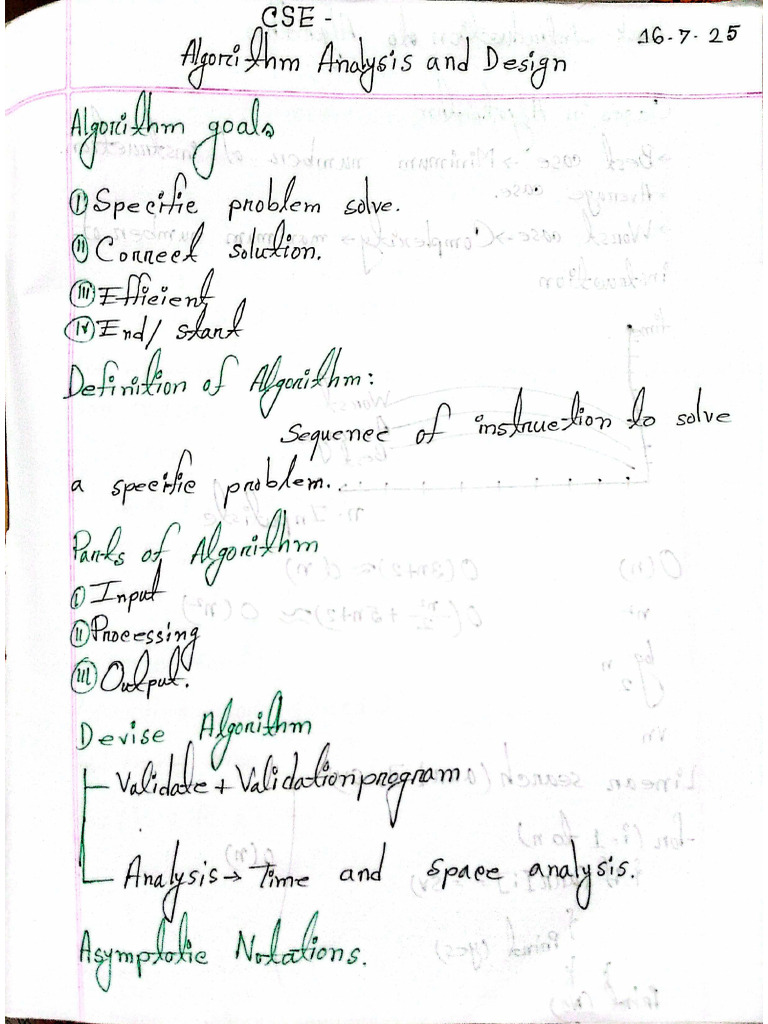 CSE -
16-7-25
Algorithm Analysis and Design
Algorithm goals
(i) Specific problem solve.
(ii) Correct solution.
(iii) Efficient
(iv) End/ start
Definition of Algorithm:
Sequence of instruction to solve
a specific problem..
Parts of Algorithm
(i) Input
(ii) Processing
(iii) Output.
Devise Algorithm
Validate + Validation program.
Analysis → Time and space analysis.
Asymptotic Notations.